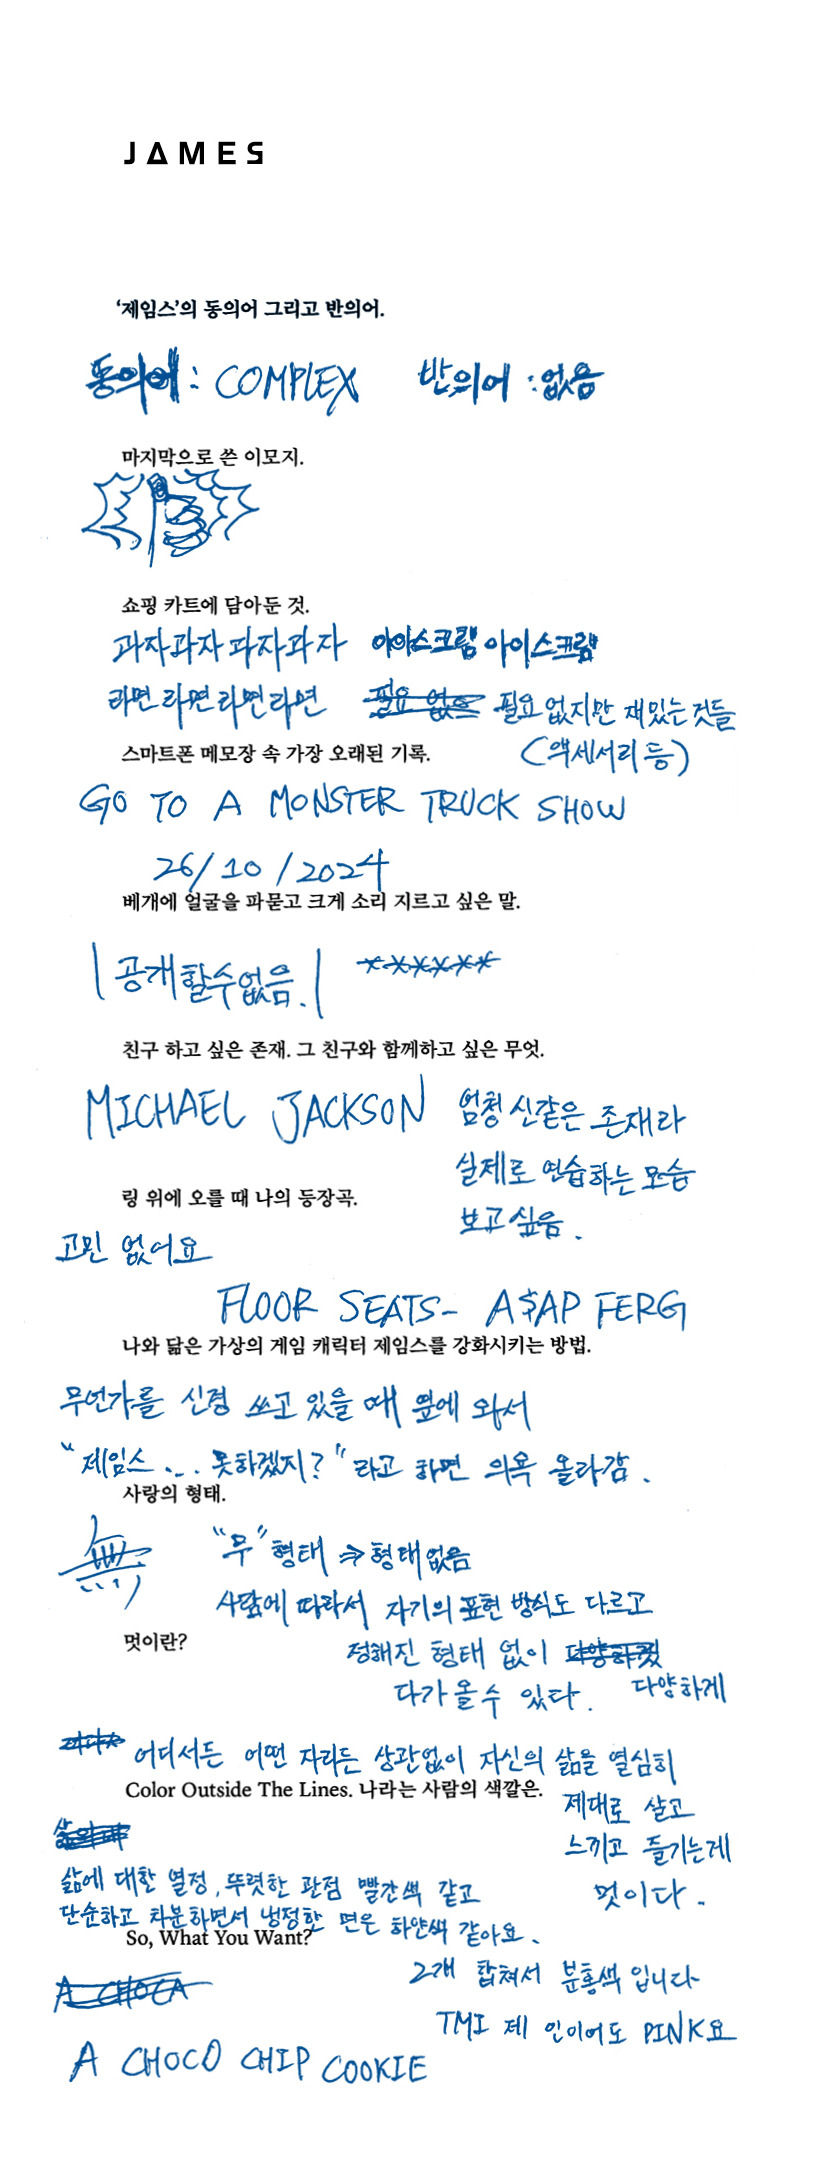 JAMES
‘제임스’의 동의어 그리고 반의어.
동의어 : COMPLEX 반의어 : 없음
마지막으로 쓴 이모지.
쇼핑 카트에 담아둔 것.
과자과자과자과자 아이스크림 아이스크림
라면라면라면라면 필요 없는 필요 없지만 재밌는 것들
(액세서리 등)
스마트폰 메모장 속 가장 오래된 기록.
GO TO A MONSTER TRUCK SHOW
26/10/2024
베개에 얼굴을 파묻고 크게 소리 지르고 싶은 말.
| 공개할수없음. | ******
친구 하고 싶은 존재. 그 친구와 함께하고 싶은 무엇.
MICHAEL JACKSON 엄청 신같은 존재라
실제로 연습하는 모습
보고싶음.
링 위에 오를 때 나의 등장곡.
고민 없어요
FLOOR SEATS - A$AP FERG
나와 닮은 가상의 게임 캐릭터 제임스를 강화시키는 방법.
무언가를 신경 쓰고 있을 때 옆에 와서
“제임스... 못하겠지?” 라고 하면 의욕 올라감.
사랑의 형태.
無 “무” 형태 => 형태없음
사람에 따라서 자기의 표현 방식도 다르고
정해진 형태 없이
다가올수 있다. 다양하게
멋이란?
어디서든 어떤 자리든 상관없이 자신의 삶을 열심히
제대로 살고
느끼고 즐기는게
멋이다.
Color Outside The Lines. 나라는 사람의 색깔은.
삶에 대한 열정, 뚜렷한 관점 빨간색 같고
단순하고 차분하면서 냉정한 면은 하얀색 같아요.
2개 합쳐서 분홍색 입니다
TMI 제 인이어도 PINK요
So, What You Want?
A CHOCA
A CHOCO CHIP COOKIE